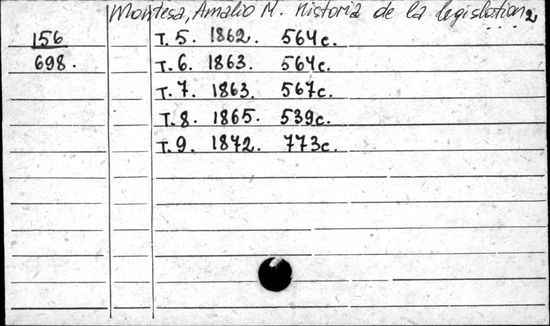 Montesa, Amalio M. Historia de la legislation 2
156 T. 5. 1862. 564c.
698. T. 6. 1863. 564c.
T. 7. 1863. 567c.
T. 8. 1865. 539c.
T. 9. 1872. 773c.